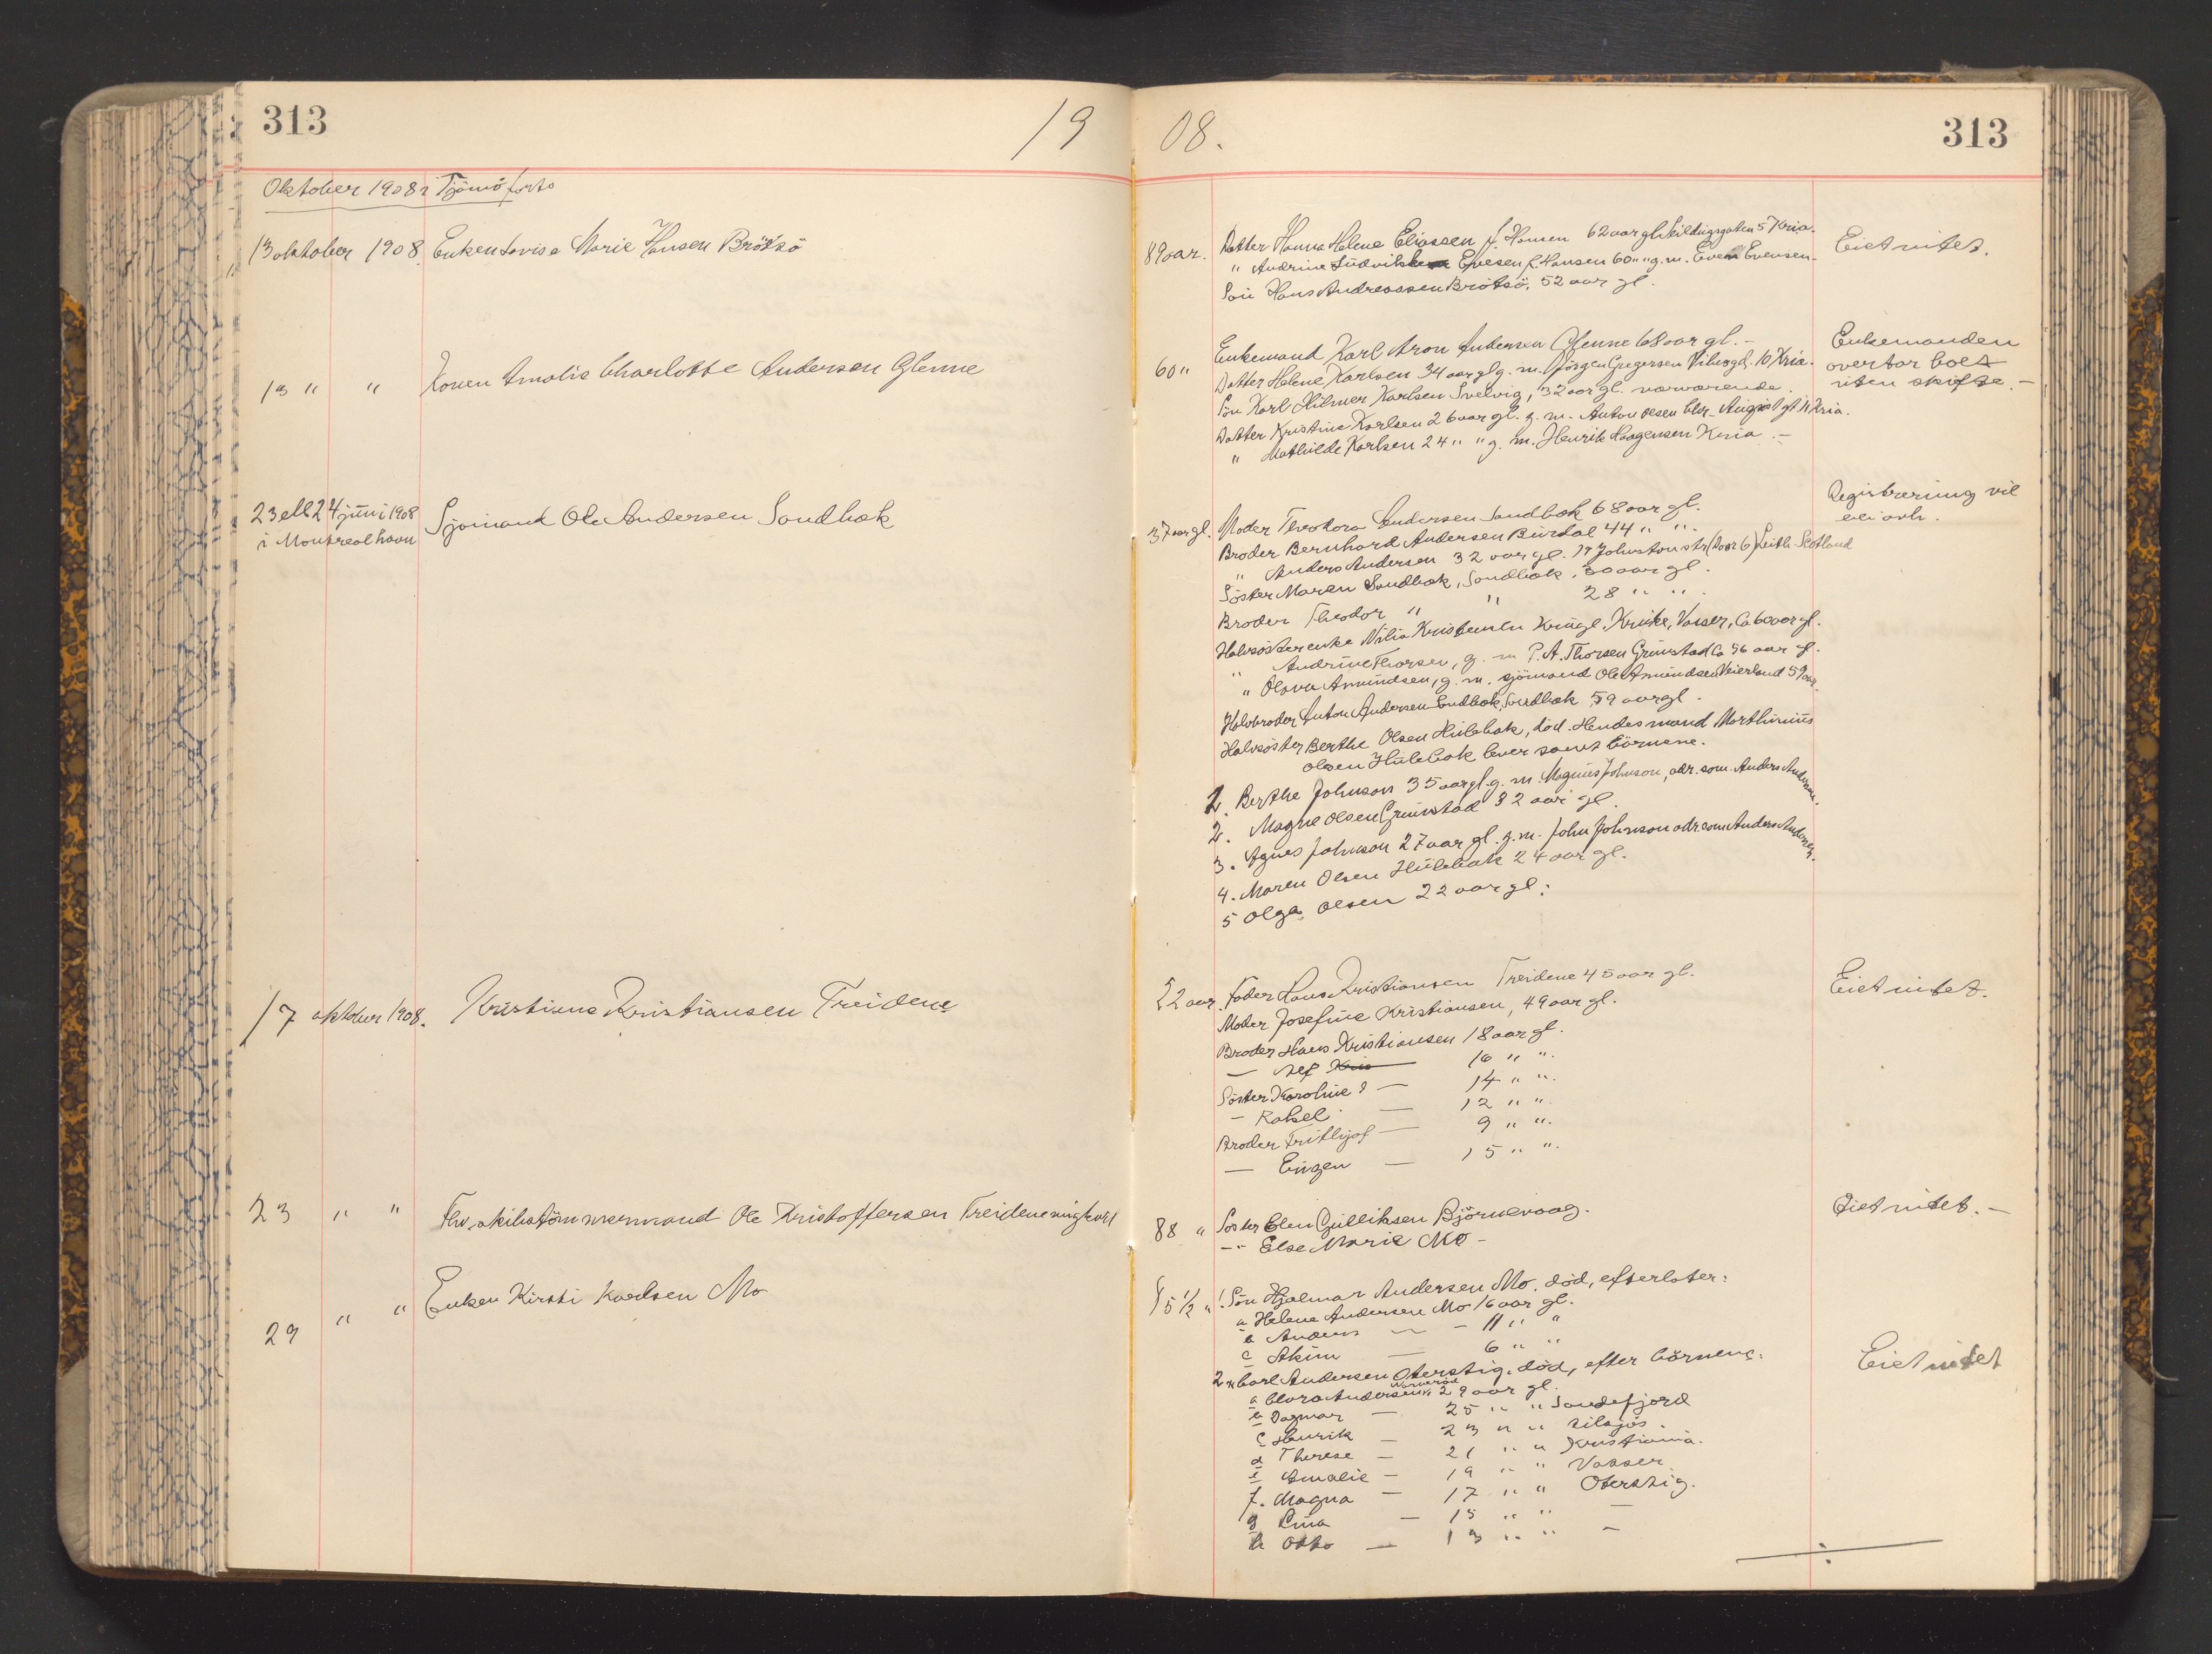 313
19 08.
313
Oktober 1908 i Tjömö forts
13 oktober 1908. Enken Lovise Marie Hansen Brötsö
89 aar. Datter Hanna Helene Eliassen f. Hansen 62 aar gl. 57 Kria.
Eiet intet.
" Andrine Evesen f. Hansen 60 " " g. m. Even Evensen.
Sön Hans Andreassen Brötsö, 52 aar gl.
13 " " Konen Amalie Charlotte Andersen Glenne
60 " Enkemand Karl Aron Andersen Glenne 68 aar gl. -
Datter Helene Karlsen 34 aar gl g. m. Jörgen Gregersen 10 Kria.
Sön Karl Hilmer Karlsen Svelvig, 32 aar gl. nærværende.
Datter Kristine Karlsen 26 aar gl. g. m. Anton Olsen Kria.
" Mathilde Karlsen 24 " " g. m. Henrik Haagensen Kria. -
Enkemanden
overtar boet
uten skifte. -
23 ell 24 juni 1908
i Montreal havn
Sjömand Ole Andersen Sondbæk
37 aar gl. Moder Theodora Andersen Sandbæk 68 aar gl.
Registrering vil
bli avh.
Broder Bernhard Andersen Burdal 44 " "
" Anders Andersen 32 aar gl. 17 Johnston str (door 6) Leith Scotland
Söster Maren Sandbæk, Sandbæk, 30 aar gl.
Broder Theodor " " 28 " " .
Halvsöster enke Kristensen Kruge, Vasser, Ca 60 aar gl.
" Andrine Thorsen, g. m P. A. Thorsen Grimstad Ca 56 aar gl.
" Olava Amundsen, g. m. sjömand Ole Amundsen Veierland 59 aar.
Halvbroder Anton Andersen Sandbæk, Sandbæk 59 aar gl.
Halvsöster Berthe Olsen Hulebak, död. Hendes mand Marthinius
Olsen Hulebak lever samt börnene.
1. Berthe Johnson 35 aar gl. g. m. Magnus Johnson, adr. som Anders Andersen.
2. Magne Olsen Grimstad 32 aar gl.
3. Agnes Johnson 27 aar gl. g. m. John Johnson adr som Anders Andersen.
4. Maren Olsen Hulebak 24 aar gl.
5 Olga Olsen 22 aar gl.
17 oktober 1908. Kristiane Kristiansen Treidene
22 aar. Fader Hans Kristiansen Treidene 45 aar gl.
Eiet intet.
Moder Josefine Kristiansen, 49 aar gl.
Broder Hans Kristiansen 18 aar gl.
— Alf 16 " " .
Söster Karoline — 14 " " .
— Rakel — 12 " " .
Broder Frithjof — 9 " " .
— Eugen — 15 " " .
23 " " Fhv. skibstömmermand Ole Kristoffersen Treidene
88 " Söster Elen Gulliksen Björnevaag.
Eiet intet. -
— Else Marie Mo -
29 " " Enken Kirsti Karlsen Mo
85 1/2 " 1. Sön Hjalmar Andersen Mo, död, efterlater:
a Helene Andersen Mo 16 aar gl.
b Anders — - 11 " "
c Akim — 6 " "
2 Carl Andersen Oterstig, död, efter börnene:
Eiet intet
a Clara Andersen 29 aar gl.
b Dagmar — 25 " " Sandefjord
c Henrik — 23 " " tilsjös.
d Therese — 21 " " Kristiania.
e Amalie — 19 " " Vasser
f. Magna — 17 " " Oterstig.
g Lina — 15 " " —
h Otto — 13 " " —